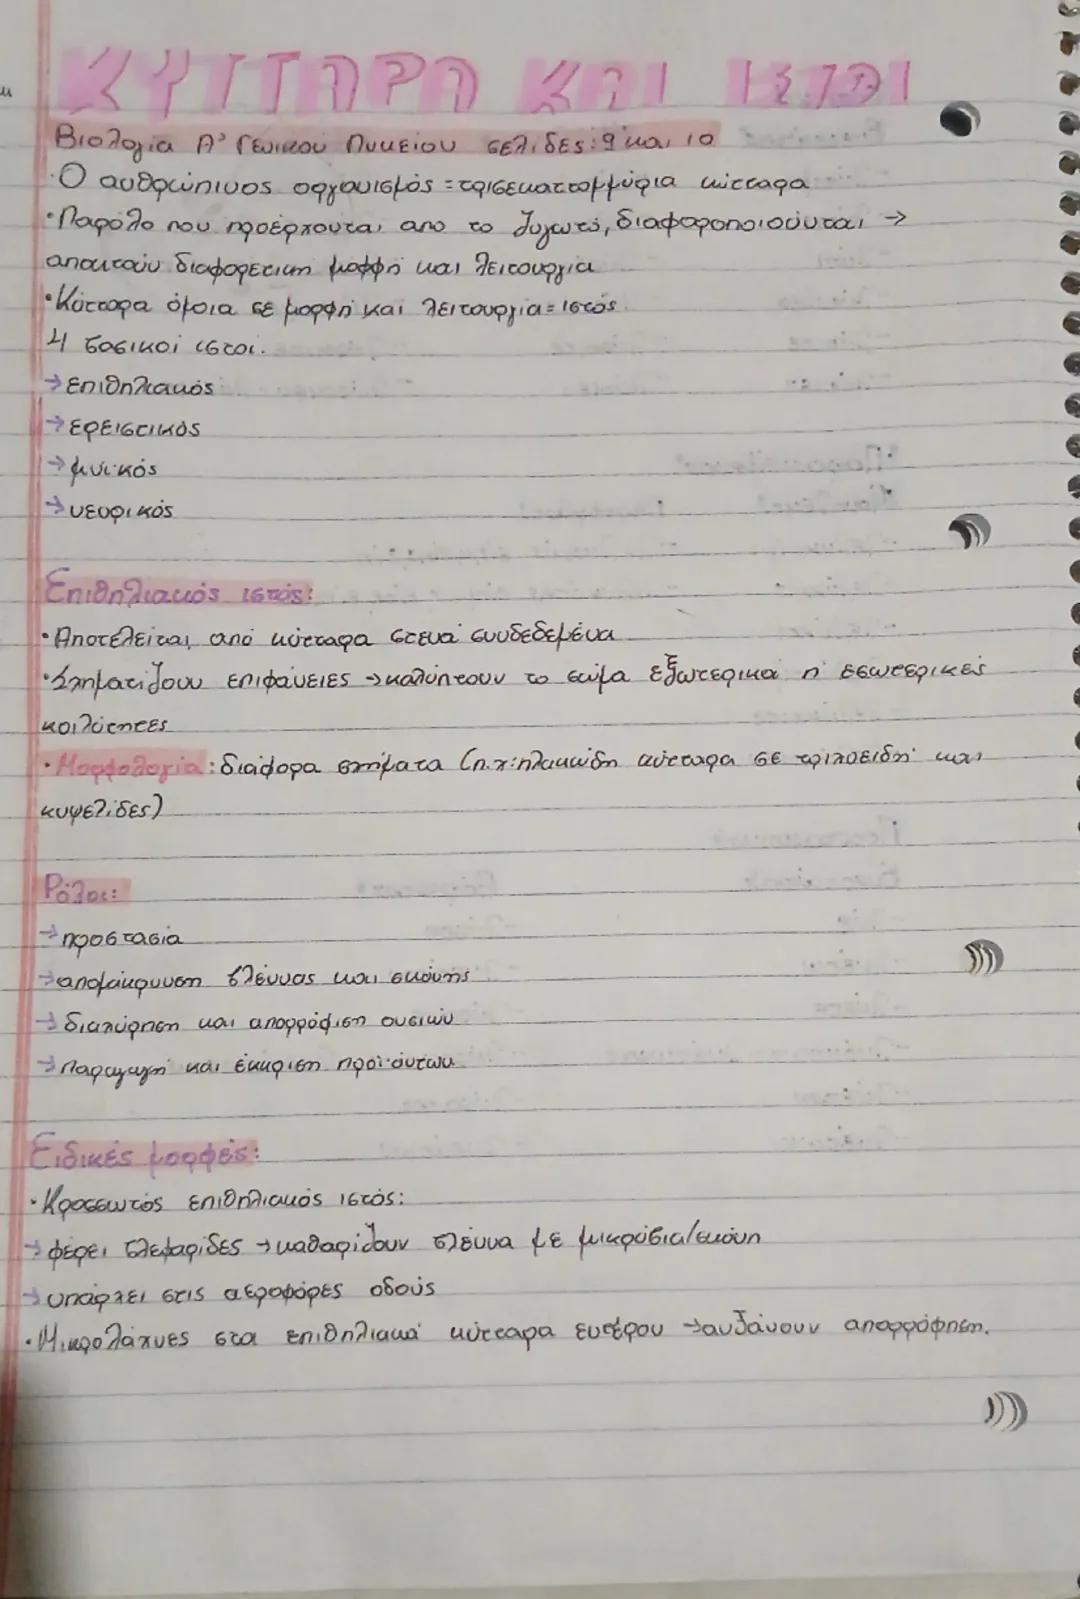 ΚΥΤΤΑΡΑ ΚΑΙ ΙΣΤΟΙ
Βιολογία Α' Γενικού Λυκείου σελίδες: 9 και 10
·Ο ανθρώπινος οργανισμός = τρισεκατομμύρια κύτταρα
·Παρόλο που προέρχονται από το ζυγωτό, διαφοροποιούνται →
αποκτούν διαφορετική μορφή και λειτουργία
·Κύτταρα όμοια σε μορφή και λειτουργία = ιστός
4 βασικοί ιστοί.
→ επιθηλιακός
→ ερειστικός
→ μυϊκός
→ νευρικός
Επιθηλιακός ιστός:
·Αποτελείται από κύτταρα στενά συνδεδεμένα
·Σχηματίζουν επιφάνειες → καλύπτουν το σώμα εξωτερικά ή εσωτερικές
κοιλότητες
·Μορφολογία: διάφορα σχήματα (π.χ: πλακώδη κύτταρα σε τριχοειδή και
κυψελίδες)
Ρόλοι:
→ προστασία
→ απομάκρυνση βλέννας και σκόνης
→ διαπύρηση και απορρόφιση ουσιών
→ Παραγωγή και έκκριση προϊόντων
Ειδικές μορφές:
·Κροσσωτός επιθηλιακός ιστός:
→ φέρει βλεφαρίδες → καθαρίζουν βλέννα με μικρόβια/σκόνη
→ υπάρχει στις αεροφόρες οδούς
·Μικρολάχνες στα επιθηλιακά κύτταρα εντέρου → αυξάνουν απορρόφηση.